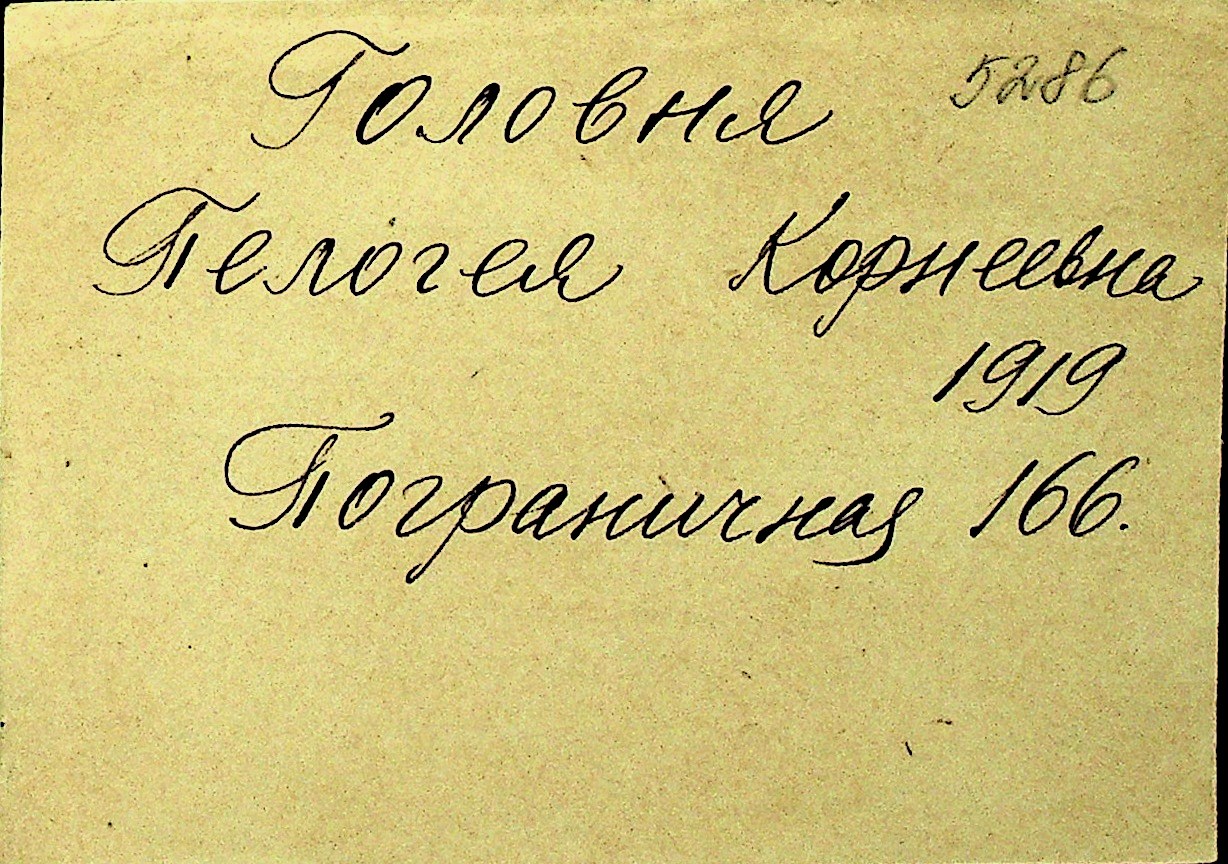 Головня 5286
Пелогея Корнеевна
1919
Пограничная 166.